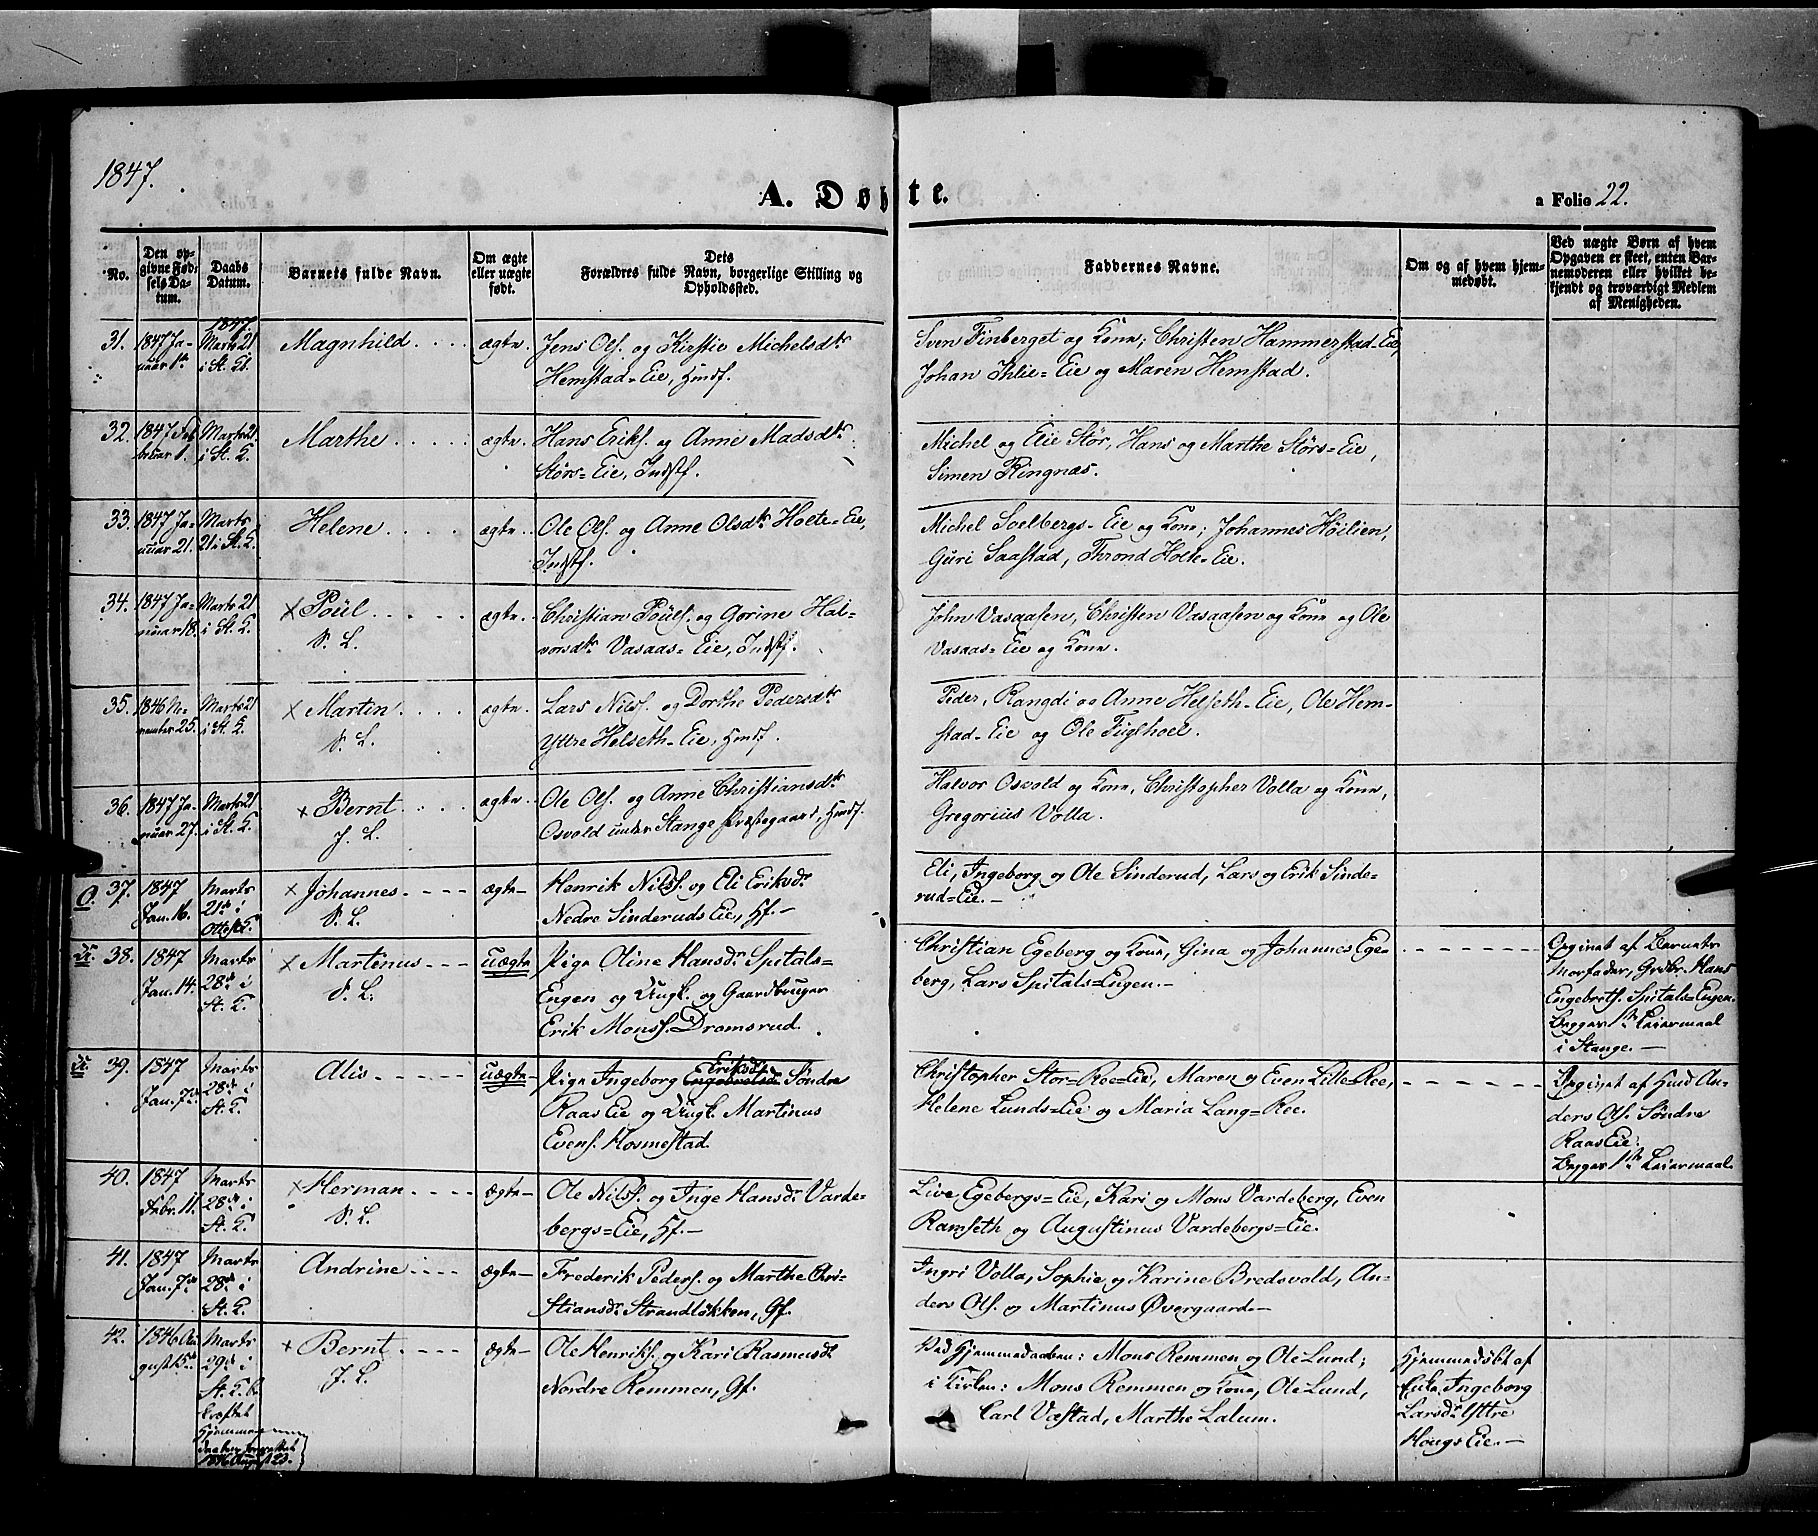 1847.
A. Døbte.
a Folio 22.
No.
Den op-
givne Fød-
sels Da-
tum.
Daabs
Datum.
Barnets fulde Navn.
Om ægte
eller uægte
født.
Dets
Forældres fulde Navn, borgerlige Stilling og
Opholdssted.
Faddernes Navne.
Om og af hvem hjem-
medøbt.
Ved uægte Børn af hvem
Opgaven er skeet, enten Bar-
nemoderen eller hvilket be-
kjendt og troværdigt Medlem
af Menigheden.
31. 1847 Ja-
nuar 1ste
1847.
Marts 21
i St. K.
Magnhild
ægte
Jens Ols. og Kirstie Michelsdtr
Hemstad=Eie, Huusf.
Sven Finberget og Kone; Christen Hammerstad=Eie,
Johan Ihlie=Eie og Maren Hemstad.
32. 1847 Feb
bruar 1.
Marts 21.
i St. K.
Marthe
ægte
Hans Eriks. og Anne Madsdtr
Störs=Eie, Indstf.
Michel og Elie Stör, Hans og Marthe Störs=Eie,
Simen Ringnæs.
33. 1847 Ja-
nuar 21.
Marts
21 i St. K.
Helene
ægte
Ole Ols. og Anne Olsdtr Hoete=Eie,
Indstf.
Michel Soelbergs=Eie og Kone; Johannes Höilien,
Guri Saastad, Thrond Hoete=Eie.
34. 1847 Ja-
nuar 18.
Marts 21
i St. K.
× Poül
S. L.
ægte
Christian Poüls. og Gorine Hal-
vorsdtr Vasaas=Eie, Indstf.
John Vasaasen, Christen Vasaasen og Kone og Ole
Vasaas=Eie og Kone.
35. 1846 No-
vember 25.
Marts 21
i St. K.
× Martin
S. L.
ægte
Lars Nils. og Dorthe Pedersdtr
Yttre Helseth=Eie, Huusf.
Peder, Rangdi og Anne Helseth=Eie, Ole Hem-
stad=Eie og Ole Fuglhoel.
36. 1847 Ja-
nuar 27.
Marts 21
i St. K.
× Bernt
J. L.
ægte
Ole Ols. og Anne Christiansdtr
Osvold under Stange Præstegaard, Huusf.
Halvor Osvold og Kone, Christopher Volla og Kone,
Gregorius Volla.
O. 37. 1847
Jan. 16.
Marts
21de i
Ottest. K.
× Johannes
S. L.
ægte
Henrik Nils. og Eli Eriksdr
Nedre Sinderuds Eie, Hf.
Eli, Ingeborg og Ole Sinderud, Lars og Erik Sinde-
rud=Eie.
38. 1847
Jan. 14.
Marts
28de i
St. K.
× Martinus
S. L.
uægte
Pige Oline Hansdr Spitals=
Engen og Ungk. og Gaardbruger
Erik Monss. Dromsrud.
Christian Egeberg og Kone, Gina og Johannes Ege-
berg, Lars Spitals=Engen.
Opgivet af Barnets
Morfader, Grdbr. Hans
Engebrets. Spitals=Engen.
Begges 1ste Leiermaal
i Stange.
39. 1847
Jan. 7de
Marts
28de i
St. K.
Alis
uægte
Eriksdr
Pige Ingeborg Engebretsdr Söndre
Raas Eie og Ungk. Martinus
Evens. Hosmestad.
Christopher Stor=Ree=Eie, Maren og Even Lille=Ree,
Helene Lunds=Eie og Maria Lang=Ree.
Opgivet af Huusm. An-
ders Ols. Söndre
Raas Eie.
Begges 1ste Leiermaal.
40. 1847
Febr. 11.
Marts
28de i
St. K.
× Herman
S. L.
ægte
Ole Nils. og Inge Hansdr Varde-
bergs=Eie, Hf.
Live Egebergs=Eie, Kari og Mons Vardeberg, Even
Ramseth og Augustinus Vardebergs=Eie.
41. 1847
Jan. 7de
Marts
28de i
St. K.
Andrine
ægte
Frederik Peders. og Marthe Chri-
stiansdr Strandløkken, Gf.
Ingri Volla, Sophie og Karine Bredvold, An-
ders Ols. og Martinus Øvergaard
42. 1846 Au-
gust 15de
Marts
29de i
St. K. be-
kræftet
Hjemme-
daaben forrettet
1846 August 23.
× Bernt
J. L.
ægte
Ole Henriks. og Kari Rasmusdr
Nordre Remmen, Gf.
Ved Hjemmedaaben: Mons Remmen og Ole Lund;
i Kirken: Mons Remmen og Kone, Ole Lund,
Carl Væstad, Marthe Lalum.
Hjemmedøbt af
Enke Ingeborg
Larsdr Yttre
Hougs Eie.